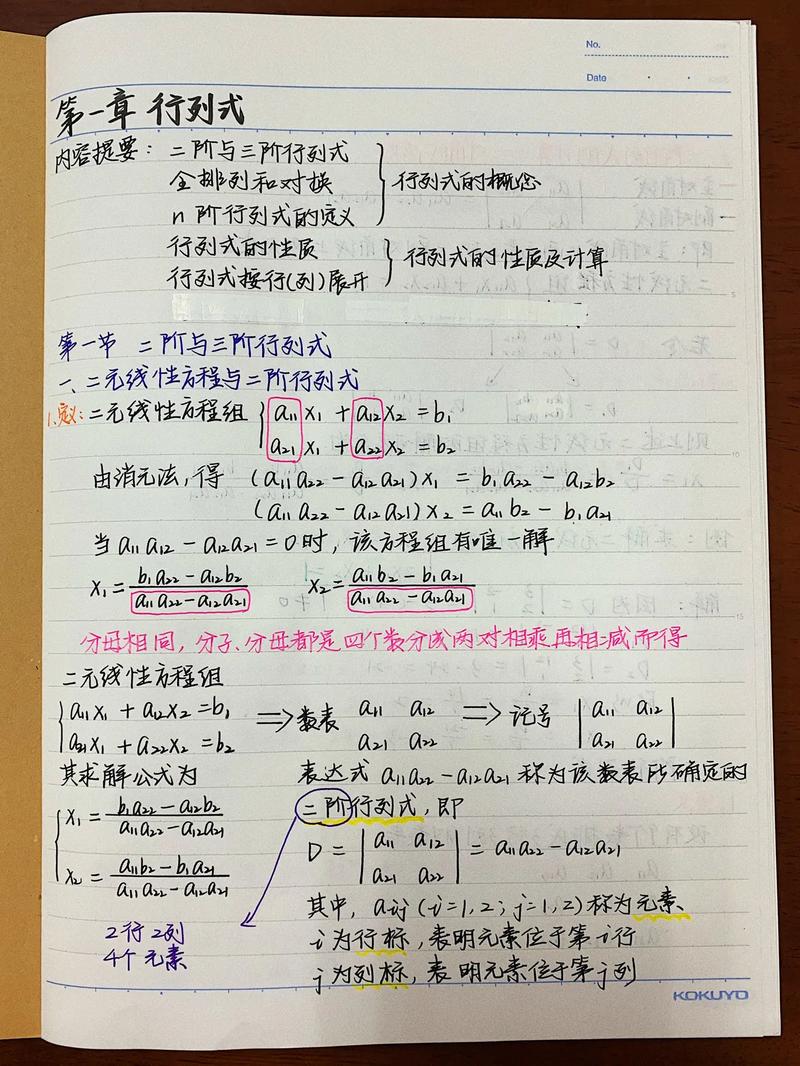 No.
Date
第一章 行列式
内容提要: 二阶与三阶行列式
全排列和对换
n 阶行列式的定义
} 行列式的概念
行列式的性质
行列式按行(列)展开
} 行列式的性质及计算
第一节 二阶与三阶行列式
一、二元线性方程与二阶行列式
1.定义: 二元线性方程组 { a₁₁x₁ + a₁₂x₂ = b₁
a₂₁x₁ + a₂₂x₂ = b₂
由消元法,得 (a₁₁a₂₂ − a₁₂a₂₁)x₁ = b₁a₂₂ − a₁₂b₂
(a₁₁a₂₂ − a₁₂a₂₁)x₂ = a₁₁b₂ − b₁a₂₁
当 a₁₁a₁₂ − a₁₂a₂₁ = 0时,该方程组有唯一解
x₁ = (b₁a₂₂ − a₁₂b₂)/(a₁₁a₂₂ − a₁₂a₂₁) x₂ = (a₁₁b₂ − b₁a₂₁)/(a₁₁a₂₂ − a₁₂a₂₁)
分母相同,分子、分母都是四个数分成两对相乘再相减而得
二元线性方程组
{ a₁₁x₁ + a₁₂x₂ = b₁ ⟹ 数表 a₁₁ a₁₂ ⟹ 记号 | a₁₁ a₁₂ |
a₂₁x₁ + a₂₂x₂ = b₂ a₂₁ a₂₂ | a₂₁ a₂₂ |
其求解公式为
{ x₁ = (b₁a₂₂ − a₁₂b₂)/(a₁₁a₂₂ − a₁₂a₂₁)
x₂ = (a₁₁b₂ − b₁a₂₁)/(a₁₁a₂₂ − a₁₂a₂₁)
2行2列
4个元素
表达式 a₁₁a₂₂ − a₁₂a₂₁ 称为该数表所确定的
二阶行列式,即
D = | a₁₁ a₁₂ | = a₁₁a₂₂ − a₁₂a₂₁
| a₂₁ a₂₂ |
其中, aij (i=1,2; j=1,2) 称为元素
i 为行标, 表明元素位于第 i 行
j 为列标, 表明元素位于第 j 列
KOKUYO